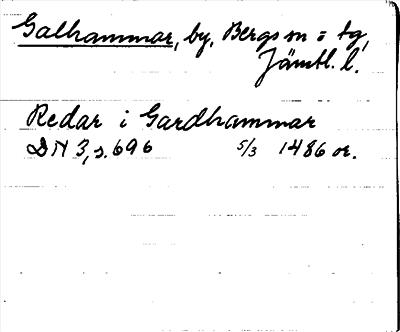 Galhammar, by, Bergs sn = tg,
Jämtl. l.
Redar i Gardhammar
DN 3, s. 696 5/3 1486 or.